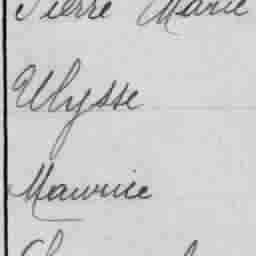 Pierre Marie
Ulysse
Maurice